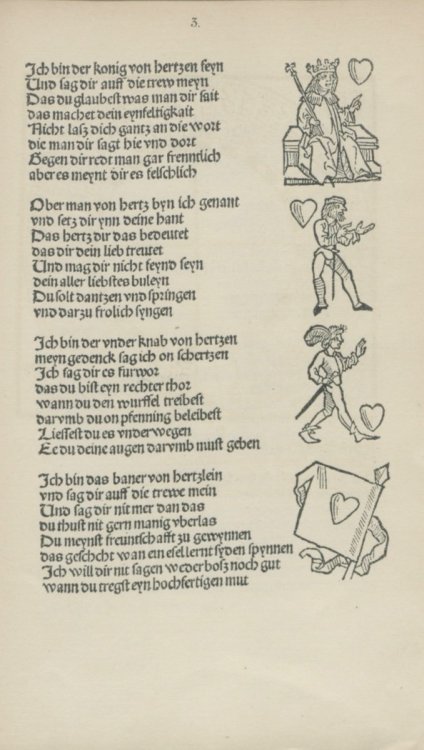 3.
Ich bin der konig von hertzen seyn
Und sag dir auff die trew meyn
Das du glaubest was man dir sait
das machet dein eynfeltigkait
Nicht lasz dich gantz an die wort
die man dir sagt hie vnd dort
Gegen dir redt man gar frenntlich
aber es meynt dir es felschlich
Ober man von hertz byn ich genant
vnd setz dir ynn deine hant
Das hertz dir das bedeutet
das dir dein lieb treutet
Und mag dir nicht feynd seyn
dein aller liebstes buleyn
Du solt dantzen vnd springen
vnd darzu frolich syngen
Ich bin der vnder knab von hertzen
meyn gedenck sag ich on schertzen
Ich sag dir es furwor
das du bist eyn rechter thor
wann du den wurffel treibest
darvmb du on pfenning beleibest
Liessest du es vnderwegen
Ee du deine augen darvmb must geben
Ich bin das baner von hertzlein
vnd sag dir auff die trewe mein
Und sag dir nit mer dan das
du thust nit gern manig vberlas
Du meynst freuntschafft zu gewynnen
das geschcht wan ein esel lernt syden spynnen
Ich will dir nit sagen weder bosz noch gut
wann du tregst eyn hochfertigen mut